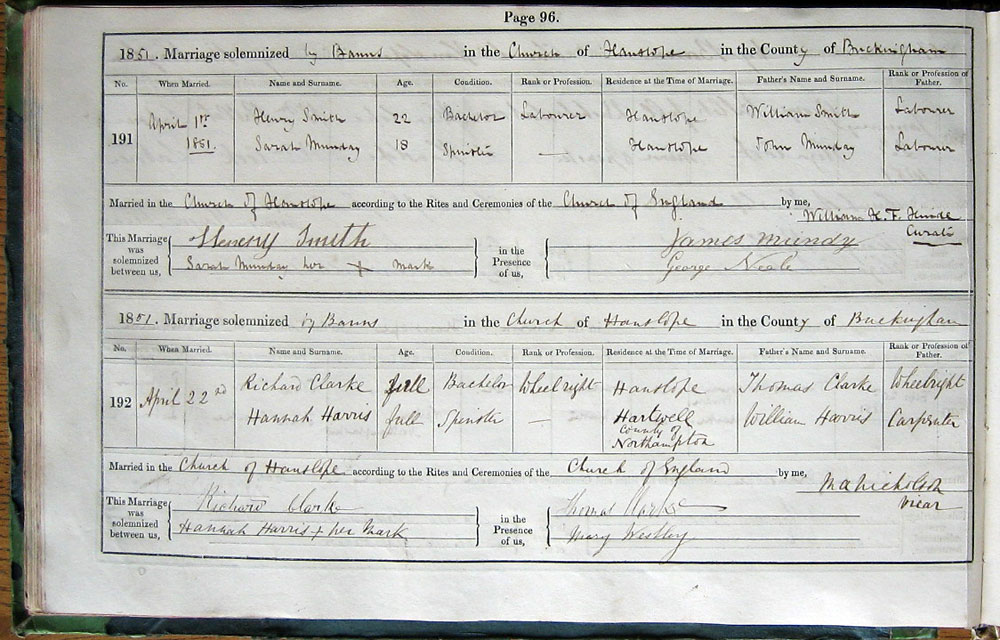 Page 96.
1851. Marriage solemnized by Banns in the Church of Hanslope in the County of Buckingham
No. When Married. Name and Surname. Age. Condition. Rank or Profession. Residence at the Time of Marriage. Father's Name and Surname. Rank or Profession of Father.
191 April 1st 1851. Henry Smith 22 Bachelor Labourer Hanslope William Smith Labourer
Sarah Munday 18 Spinster — Hanslope John Munday Labourer
Married in the Church of Hanslope according to the Rites and Ceremonies of the Church of England by me,
William H. F. Hinde
Curate
This Marriage was solemnized between us, Henery Smith in the Presence of us, James Mundy
Sarah Munday her x mark George Neale
1851. Marriage solemnized by Banns in the Church of Hanslope in the County of Buckingham
No. When Married. Name and Surname. Age. Condition. Rank or Profession. Residence at the Time of Marriage. Father's Name and Surname. Rank or Profession of Father.
192 April 22nd Richard Clarke full Bachelor Wheelright Hanslope Thomas Clarke Wheelright
Hannah Harris full Spinster — Hartwell County of Northampton William Harris Carpenter
Married in the Church of Hanslope according to the Rites and Ceremonies of the Church of England by me,
M A Nicholson
Vicar
This Marriage was solemnized between us, Richard Clarke in the Presence of us, Thomas Clarke
Hannah Harris x her Mark Mary Westley